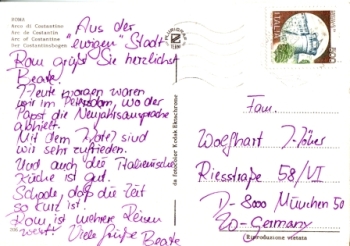 ROMA
Arco di Costantino
Arc de Costantin
Arc of Costantine
Der Constantinbogen
Aus der
"ewigen" Stadt
Rom grüßt Sie herzlichst
Beate.
Heute morgen waren
wir im Petersdom, wo der
Papst die Neujahrsansprache
abhielt.
Mit dem Hotel sind
wir sehr zufrieden.
Und auch die Italienische
Küche ist gut.
Schade, daß die Zeit
so kurz ist!
Rom ist mehrere Reisen
wert! Viele Grüße Beate
da fotocolor Kodak Ektachrome
ITALIA
Fam.
Wolfhart
Riesstraße 58/VI
D-8000 München 50
W-Germany
Riproduzione vietata